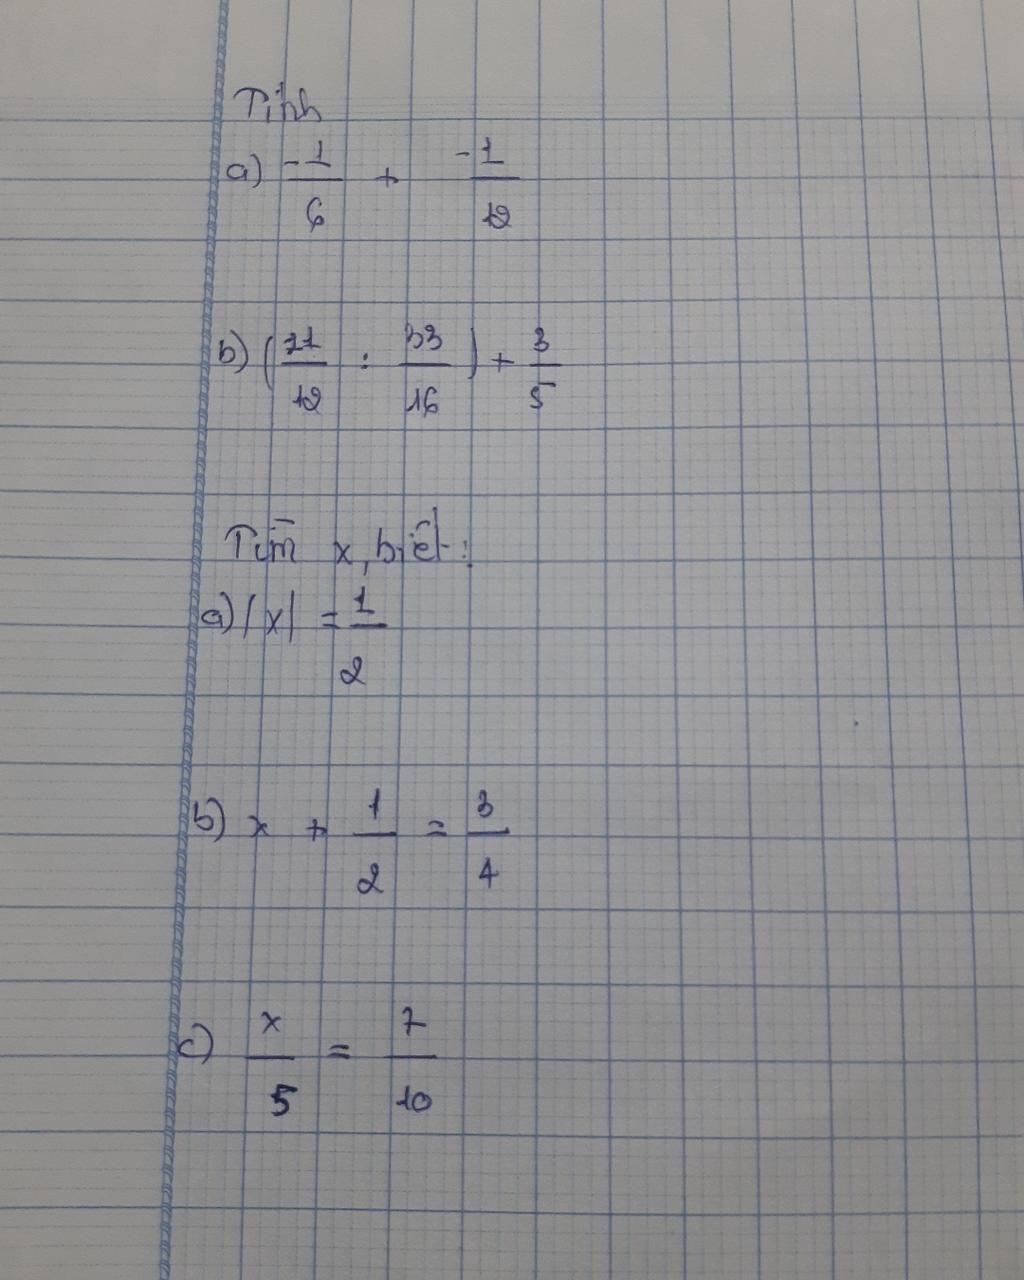 Tính
a) -1/6 + -1/12
b) (11/12 : 33/16) + 3/5
Tìm x, biết:
a) |x| = 1/2
b) x + 1/2 = 3/4
c) x/5 = 7/10